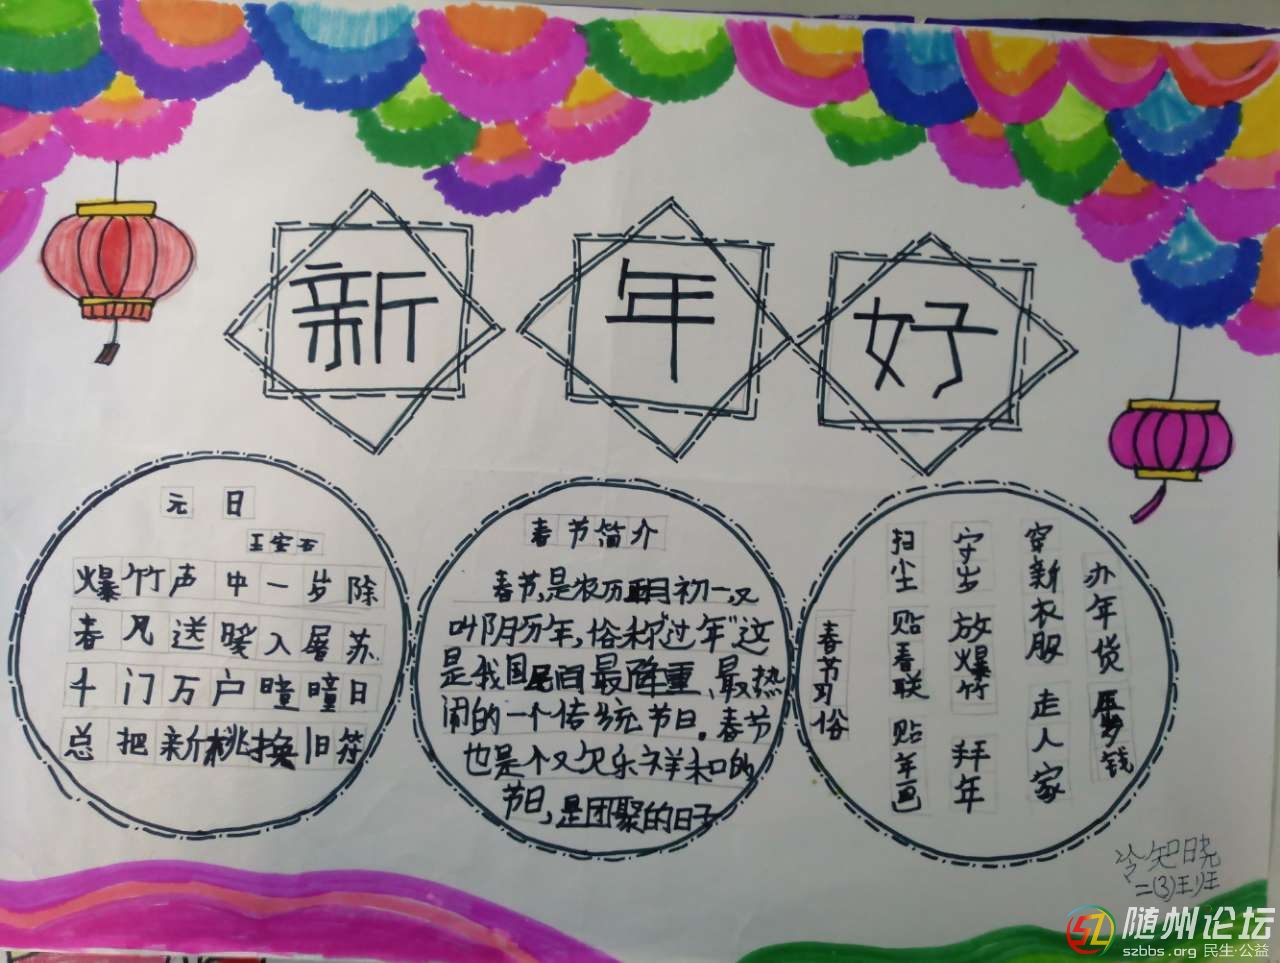 新年好
元日
王安石
爆竹声中一岁除
春风送暖入屠苏
千门万户曈曈日
总把新桃换旧符
春节简介
春节,是农历正月初一,又
叫阴历年,俗称“过年”这
是我国民间最隆重、最热
闹的一个传统节日。春节
也是个欢乐祥和的
节日,是团聚的日子
春节习俗
扫尘 贴春联 贴年画
守岁 放爆竹 拜年
穿新衣服 走人家
办年货 压岁钱
冷知晓
二(3)班
随州论坛
szbbs.org 民生·公益